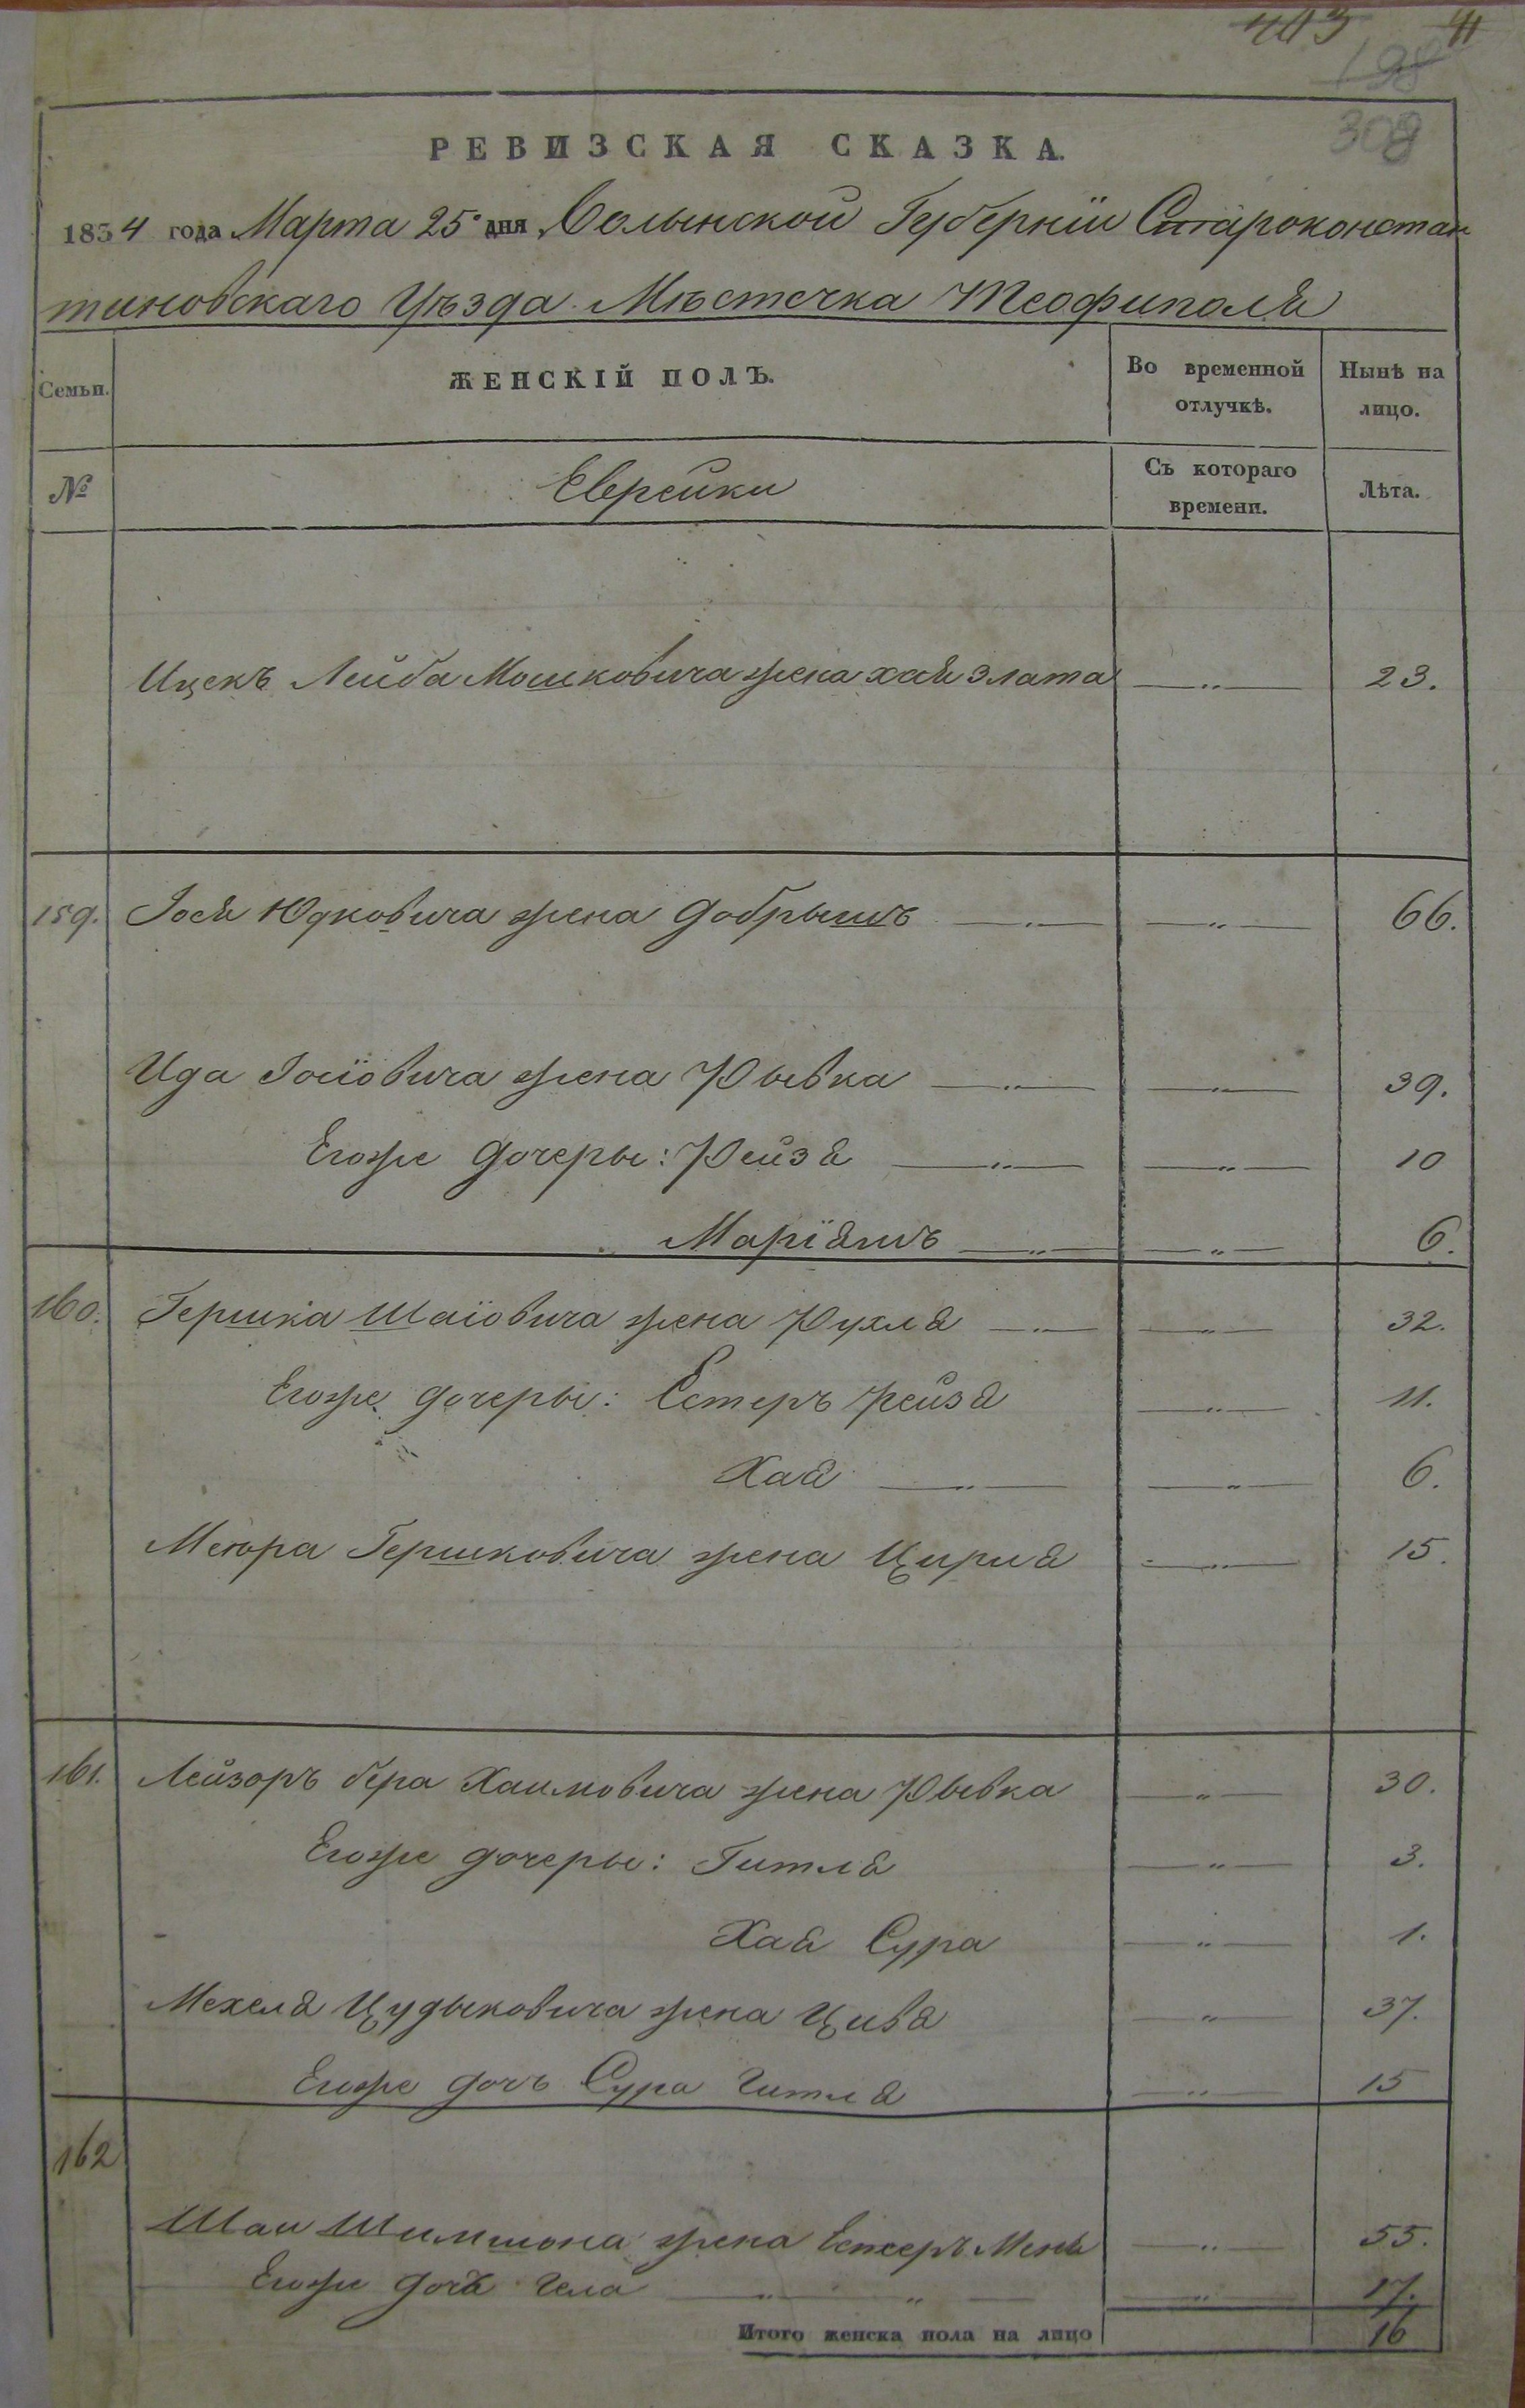 403 41
198
308
РЕВИЗСКАЯ СКАЗКА.
1834 года Марта 25 дня Волынской Губерніи Староконстан
тиновскаго Уѣзда Мѣстечка Теофиполя
Семьи. ЖЕНСКІЙ ПОЛЪ. Во временной отлучкѣ. Нынѣ на лицо.
№ Еврейки Съ котораго времени. Лѣта.
Ицекъ Лейба Мошковича жена Хая Злата —„— 23.
159. Іося Юдковича жена Добрышъ —„— —„— 66.
Ида Іосіовича жена Рывка —„— —„— 39.
Егоже дочеры: Рейзя —„— —„— 10
Маріямъ —„— —„— 6.
160. Гершка Шаіовича жена Рухля —„— —„— 32.
Егоже дочеры: Естеръ Рейзя —„— 11.
Хая —„— —„— 6.
Меюра Гершковича жена Цирля —„— 15.
161. Лейзоръ Бера Хаимовича жена Рывка —„— 30.
Егоже дочеры: Гитля —„— 3.
Хая Сура —„— 1.
Мехеля Цудыковича жена Цивя —„— 37.
Егоже дочь Сура Гитля —„— 15
162
Шаи Шимшона жена Естеръ —„— 55.
Егоже дочь Гела —„— „ — —„— 17.
Итого женска пола на лицо 16